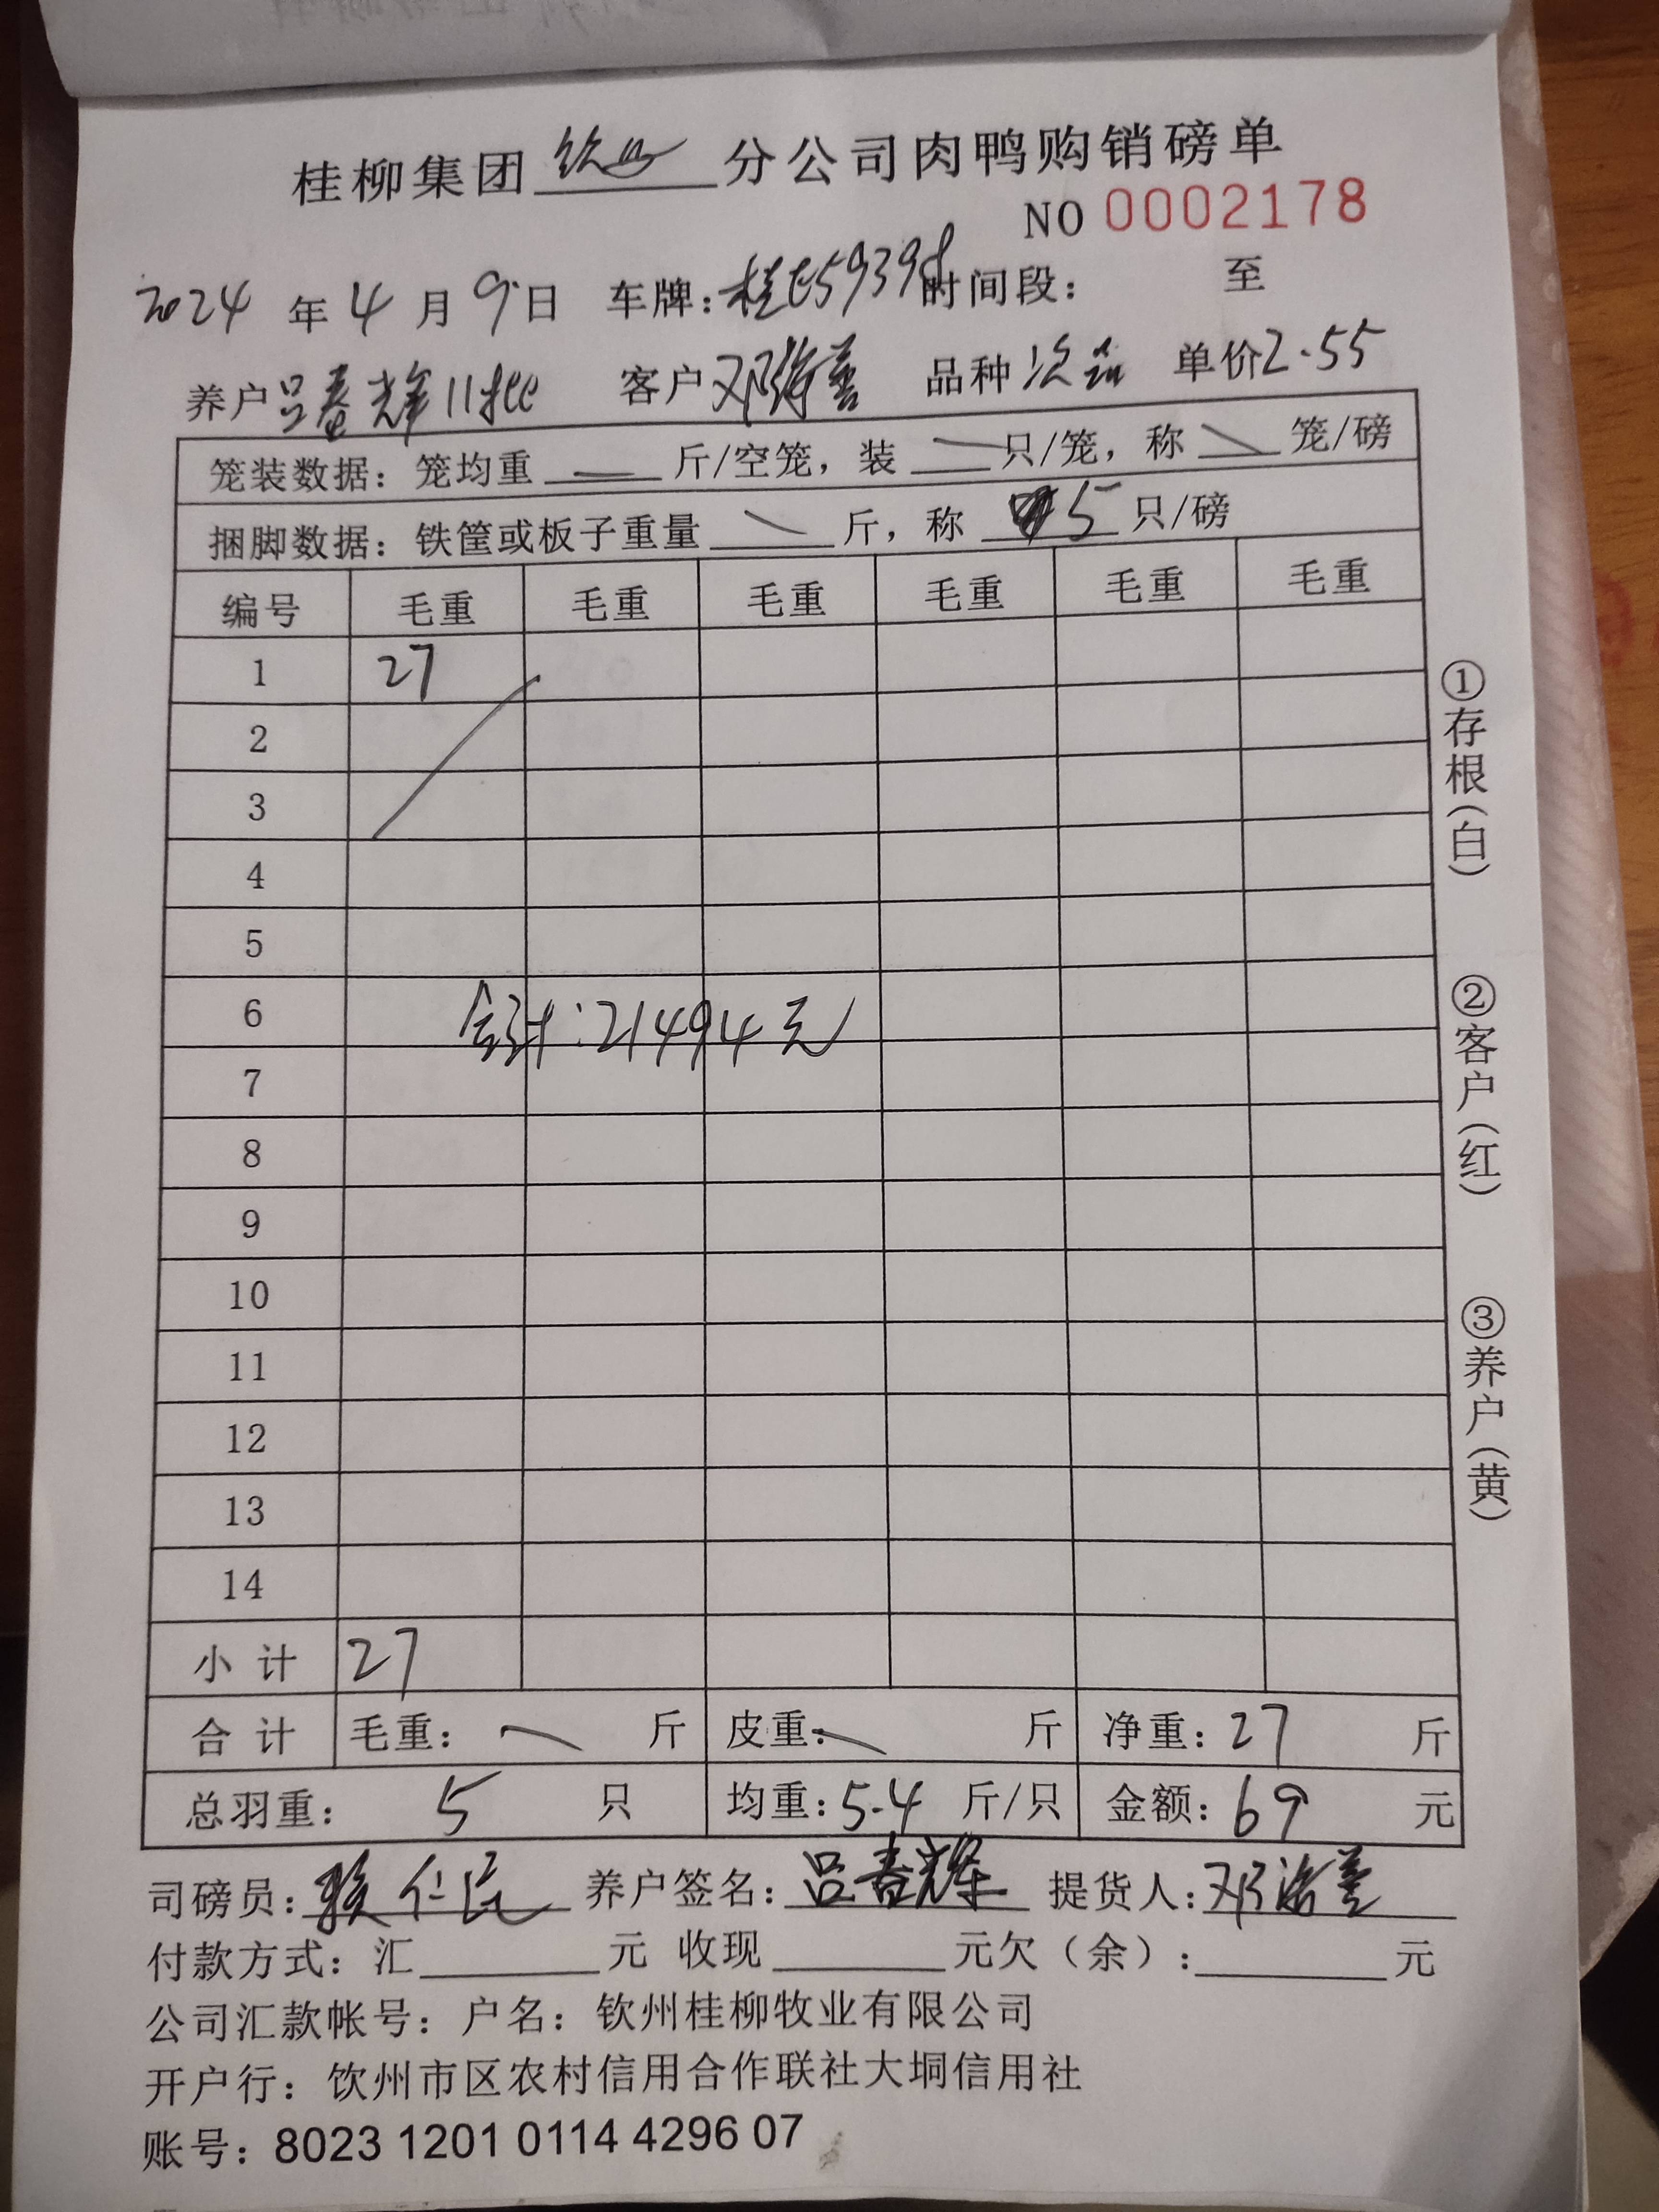 桂柳集团 钦州 分公司肉鸭购销磅单
NO 0002178
2024 年 4 月 9 日 车牌: 桂E59398 时间段: 至
养户 吕春辉11批 客户 邓 善 品种 次 单价 2.55
笼装数据: 笼均重 — 斤/空笼, 装 — 只/笼, 称 — 笼/磅
捆脚数据: 铁筐或板子重量 — 斤, 称 5 只/磅
编号 毛重 毛重 毛重 毛重 毛重 毛重
1 27
2
3
4
5
6
合计:21494元
7
8
9
10
11
12
13
14
小计 27
合计 毛重: — 斤 皮重: — 斤 净重: 27 斤
总羽重: 5 只 均重: 5.4 斤/只 金额: 69 元
司磅员: 仁 养户签名: 吕春辉 提货人: 邓 善
付款方式: 汇 元 收现 元欠(余): 元
公司汇款帐号: 户名: 钦州桂柳牧业有限公司
开户行: 饮州市区农村信用合作联社大垌信用社
账号: 8023 1201 0114 4296 07
①存根(白)
②客户(红)
③养户(黄)